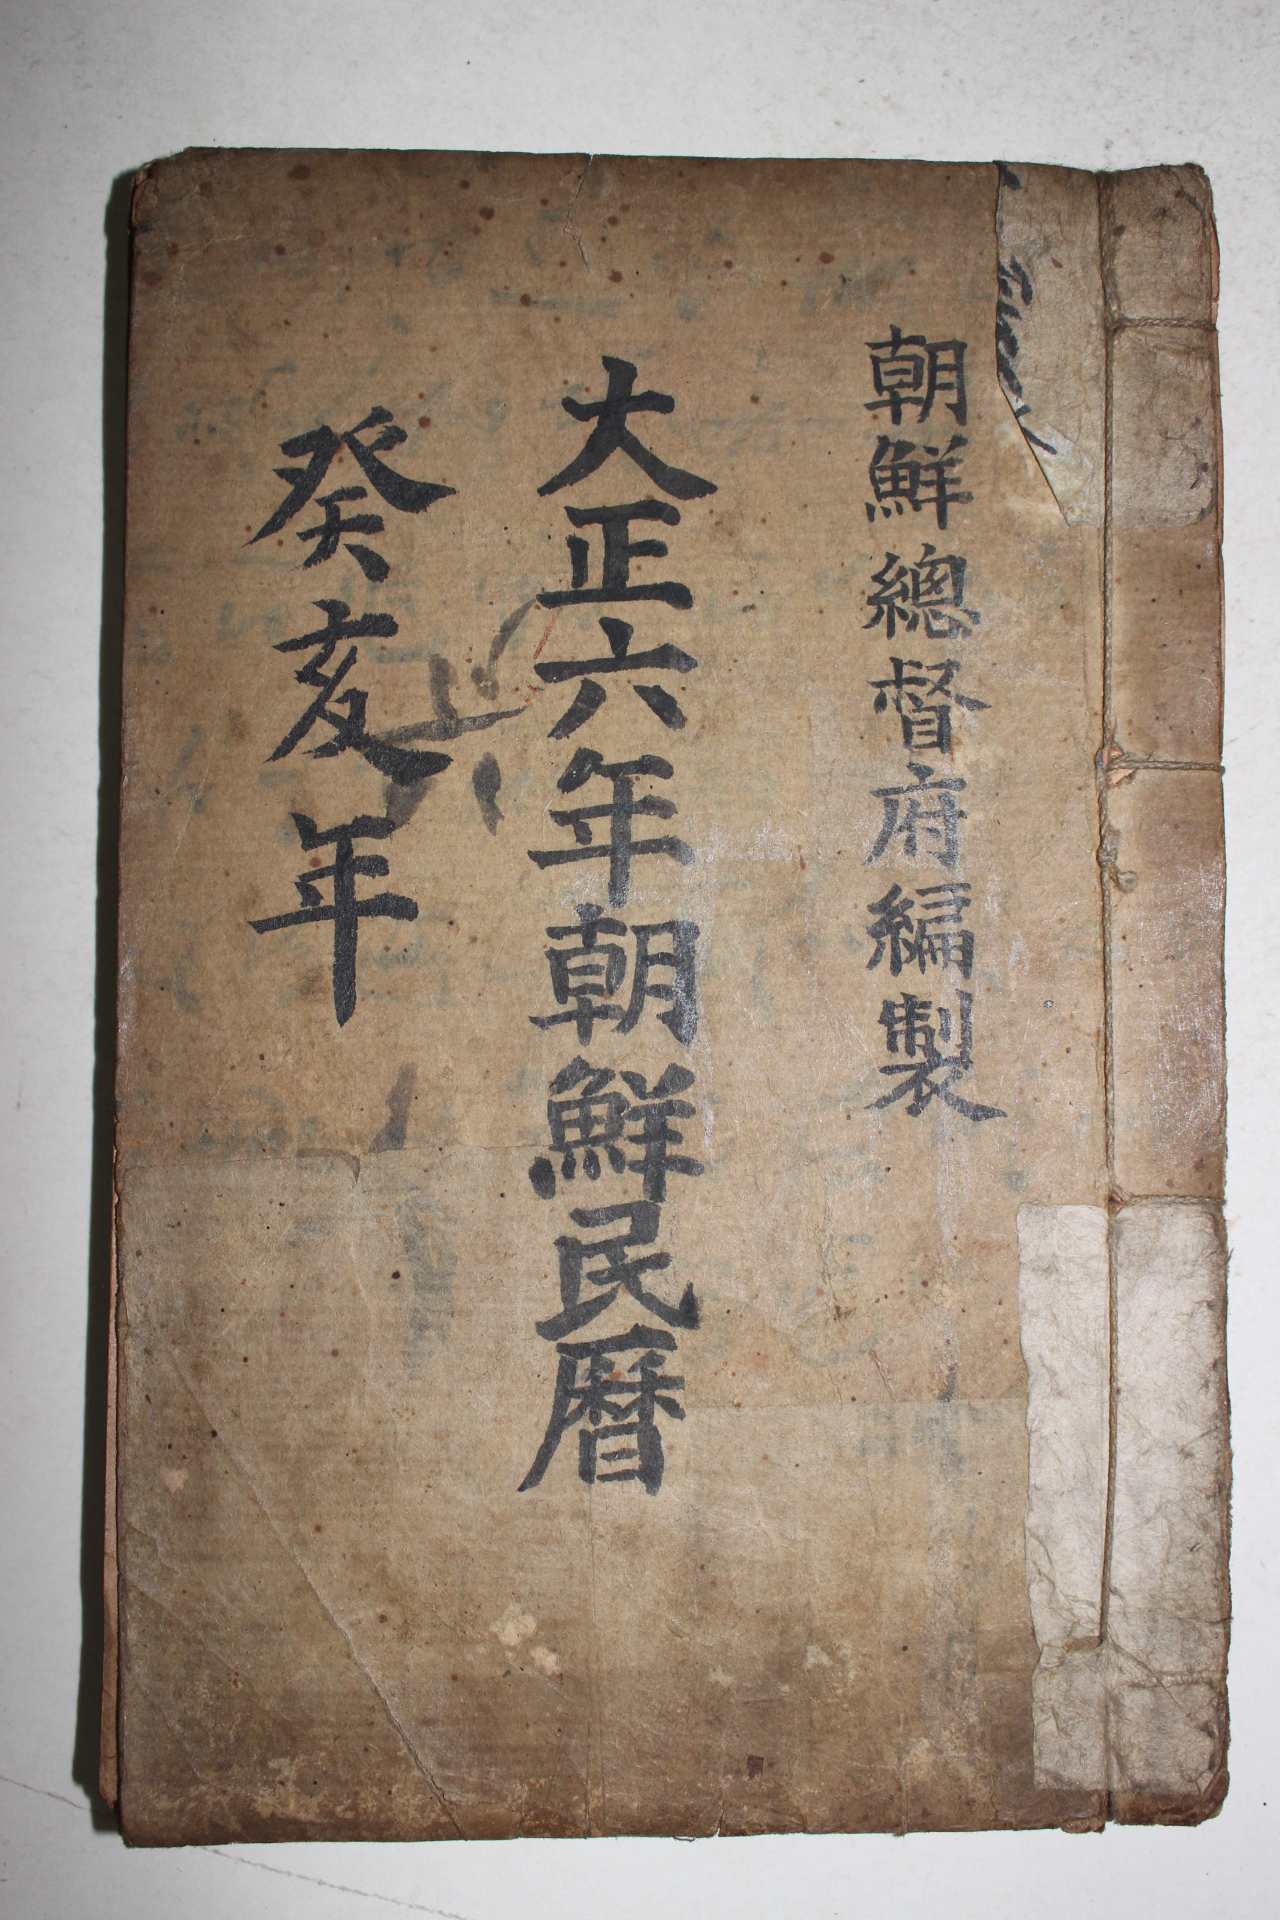 朝鮮總督府編製
大正六年朝鮮民曆
癸亥年